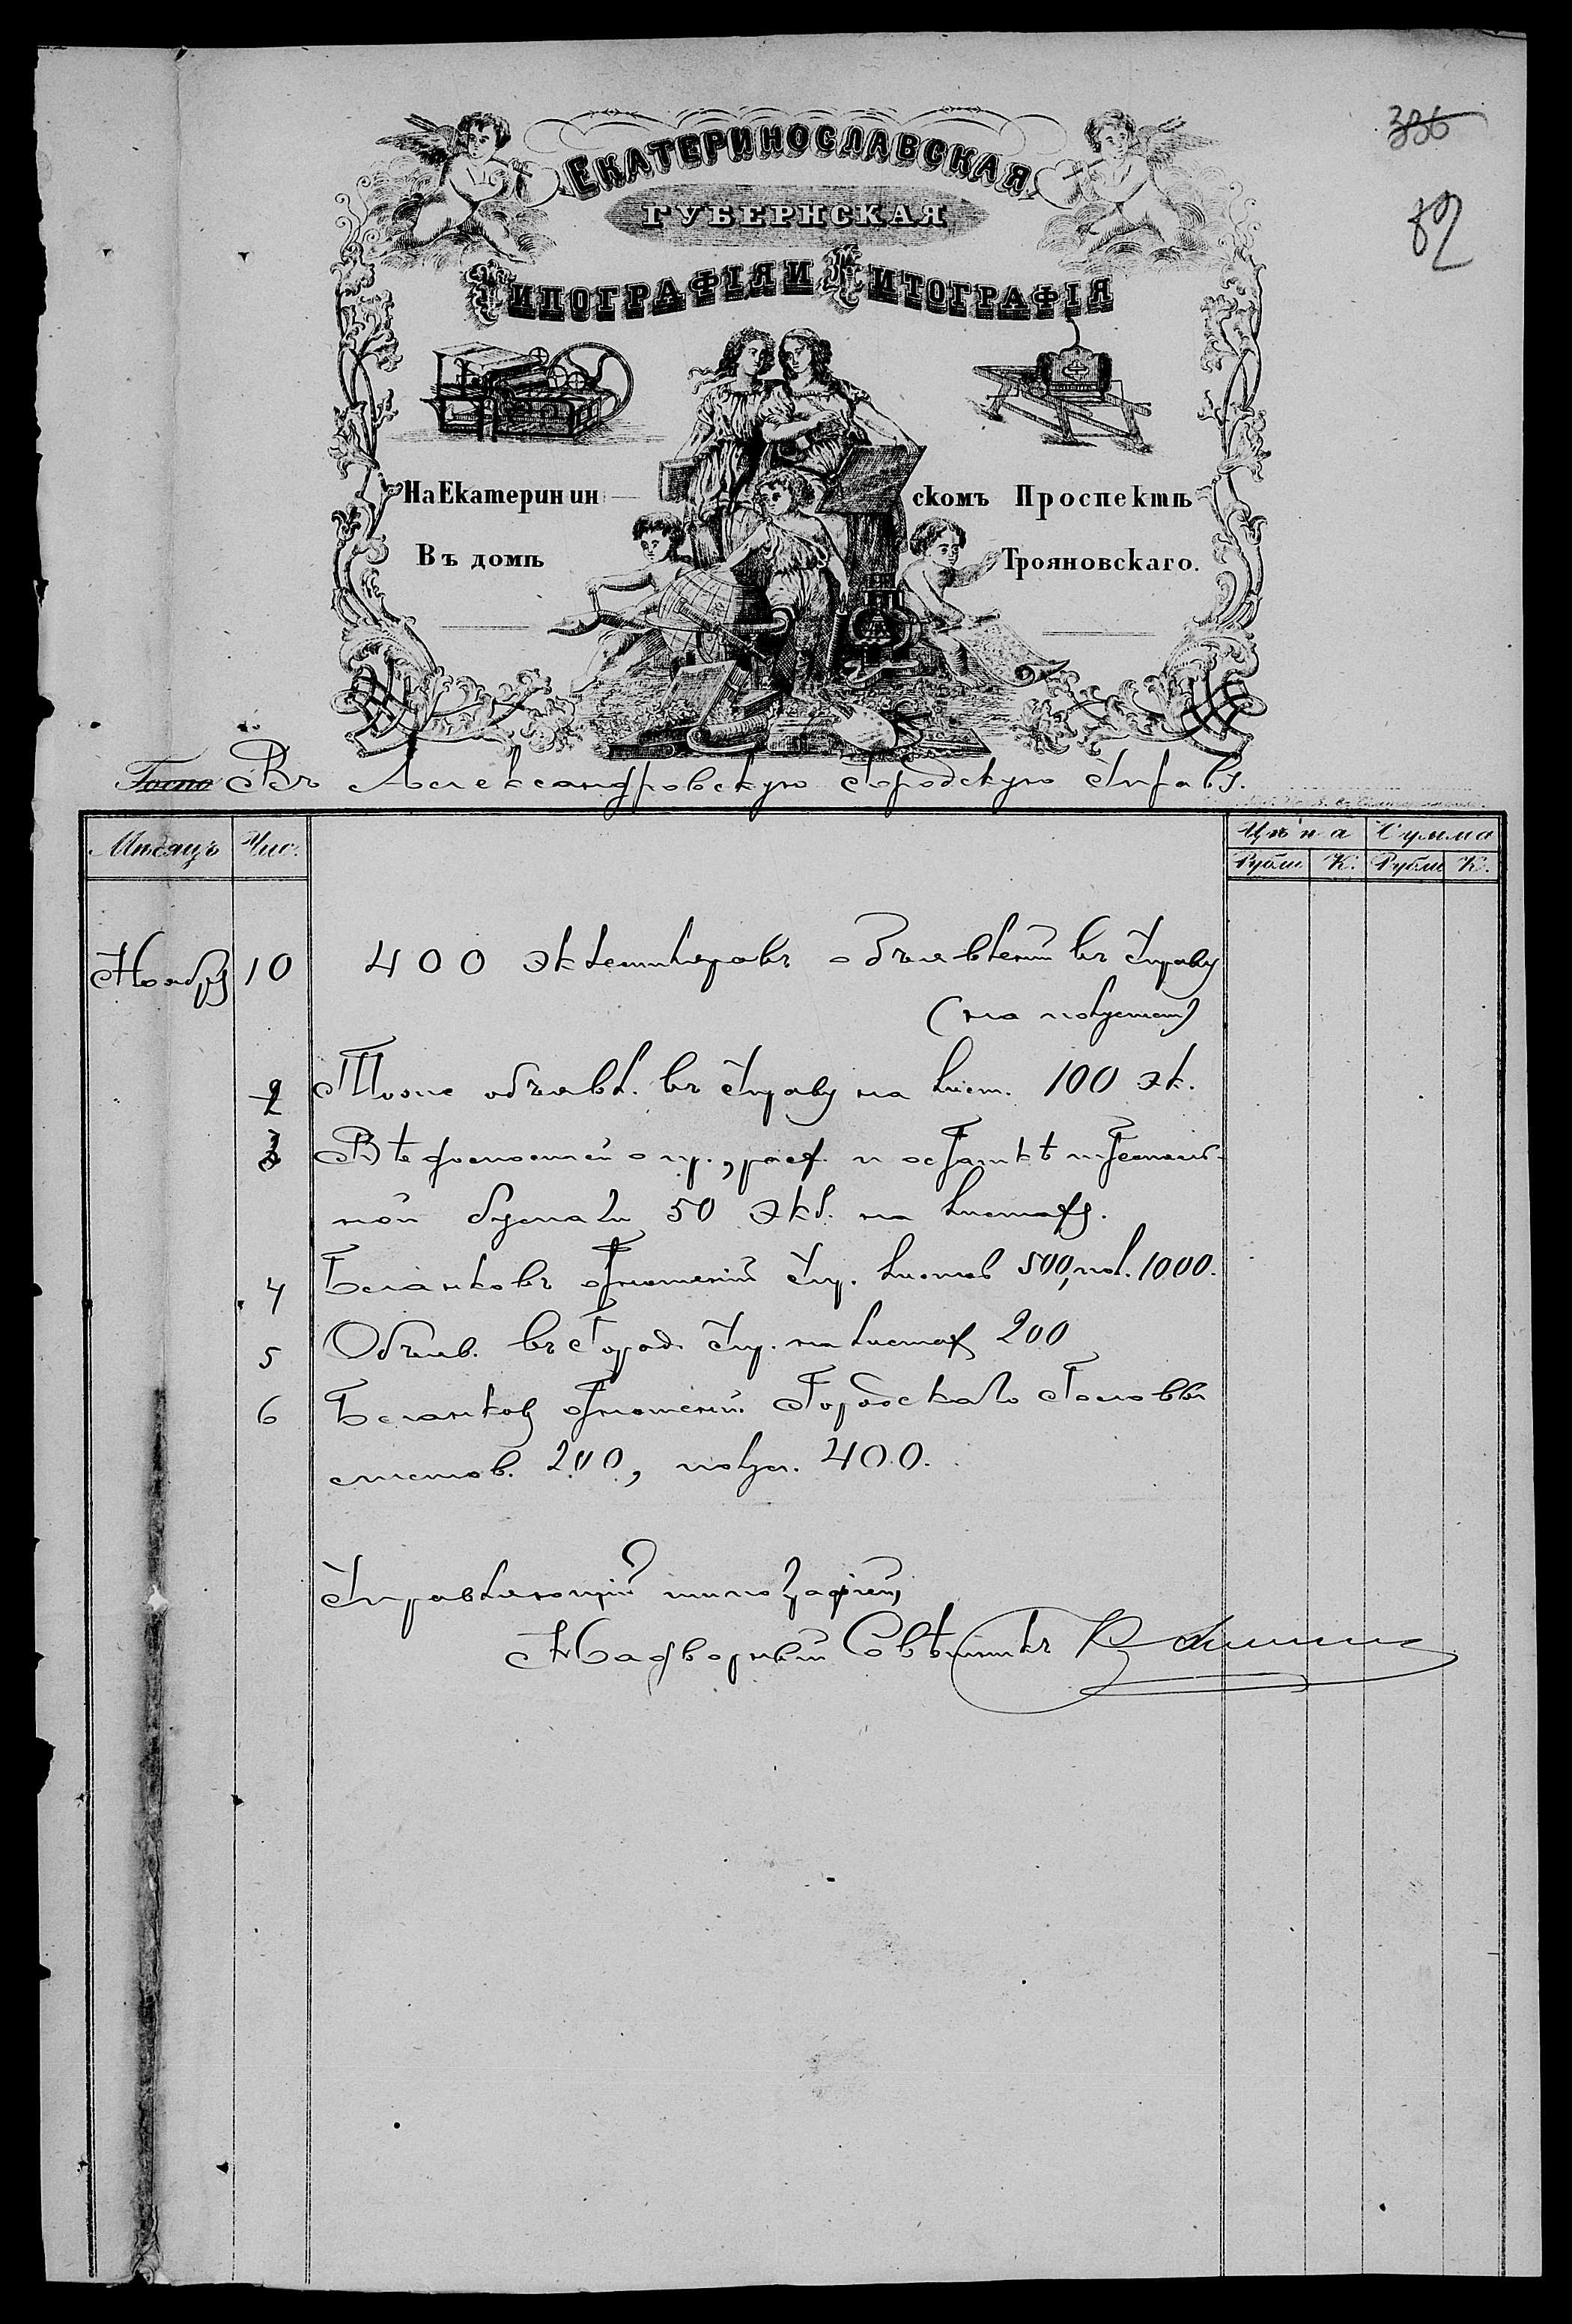 336
82
ЕКАТЕРИНОСЛАВСКАЯ
ГУБЕРНСКАЯ
ТИПОГРАФІЯ И ЛИТОГРАФІЯ
На Екатеринин скомъ Проспектѣ
Въ домѣ Трояновскаго.
Госпо Въ Александровскую Городскую Управу.
Мѣсяцъ Чис. Цѣна Сумма
Рубли К. Рубли К.
Ноября 10 400 экземпляровъ объявленій въ Управу
(на полулист)
2 Тоже объявл. въ Управу на лист. 100 эк.
3 Вѣдомостей о пр., расх. и остаткѣ
ной бумаги 50 экз. на листахъ.
4 Бланковъ отношеній Упр. листов 500, пол. 1000.
5 Объяв. въ Город. Упр. на листах 200
6 Бланковъ отношеній Городскаго Головы
листов. 200, полул. 400.
Управляющій типографіей,
Надворный Совѣтникъ